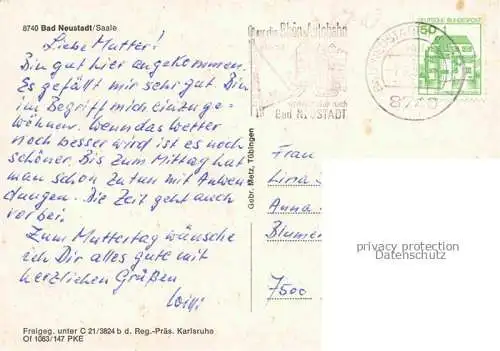 8740 Bad Neustadt/Saale
Liebe Mutter!
Bin gut hier angekommen.
Es gefällt mir sehr gut. Bin
im Begriff mich einzuge-
wöhnen. Wenn das Wetter
noch besser wird ist es noch
schöner. Bis zum Mittag hat
man schon zu tun mit Anwen-
dungen. Die Zeit geht auch
vorbei.
Zum Muttertag wünsche
ich Dir alles gute mit
herzlichen Grüßen
Willi
Freigeg. unter C 21/3824 b d. Reg.-Präs. Karlsruhe
Of 1063/147 PKE
Gebr. Metz, Tübingen
Bad NEUSTADT
8740
DEUTSCHE BUNDESPOST
50
Frau
Anna
Blumen
7500
privacy protection
Datenschutz